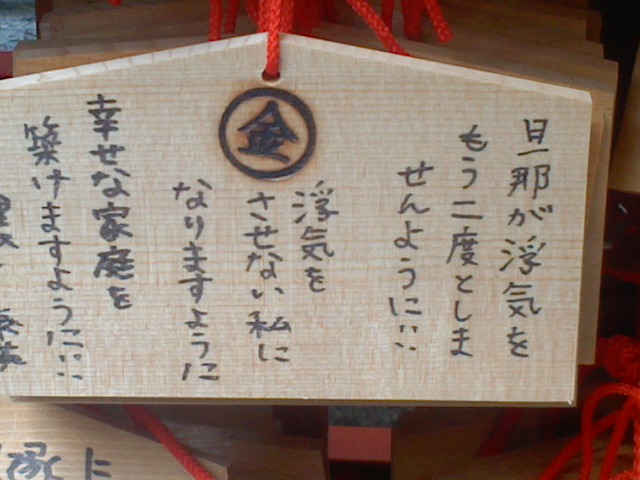 旦那が浮気を
もう二度としま
せんように…
金
浮気を
させない私に
なりますように
幸せな家庭を
築けますように…
縁に